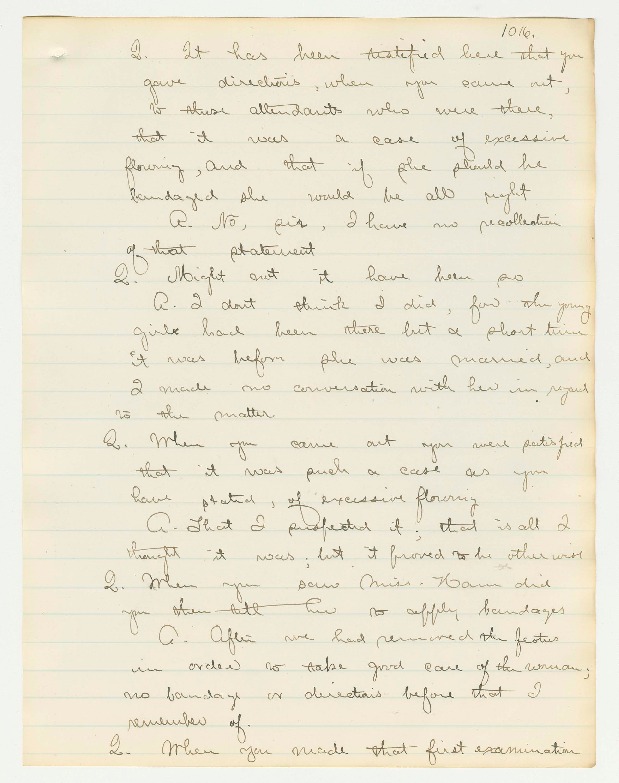 1016.
Q. It has been testified here that you
gave directions, when you came out,
to those attendants who were there,
that it was a case of excessive
flowing, and that if she should be
bandaged she would be all right
A. No, sir, I have no recollection
of that statement
Q. Might not it have been so
A. I dont think I did, for the young
girls had been there but a short time
it was before she was married, and
I made no conversation with her in regard
to the matter
Q. When you came out you were satisfied
that it was such a case as you
have stated, of excessive flowing
A. That I suspected it; that is all I
thought it was; but it proved to be otherwise
Q. When you saw Miss. Hann did
you then tell her to apply bandages
A. After we had removed the foetus
in order to take good care of the woman;
no bandage or directions before that I
remember of.
Q. When you made that first examination